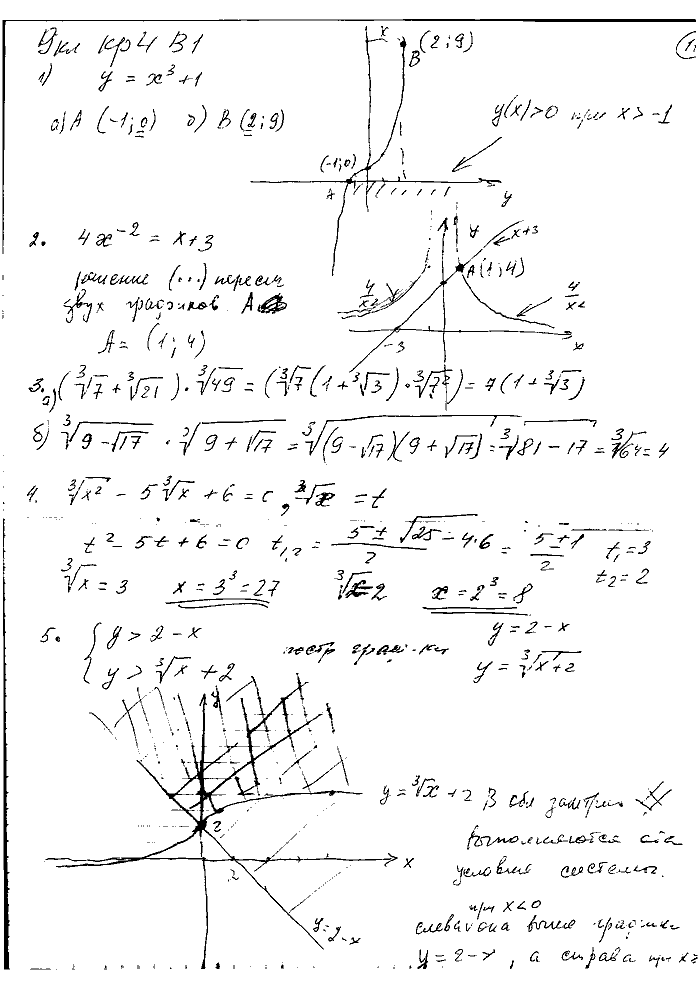 9 кл кр4 В1
1) y = x³+1
а) A (-1; 0) б) B (2; 9)
x
B (2; 9)
y(x)>0 при x > -1
(-1; 0)
A
y
2. 4x⁻² = x+3
решение (...) пересеч
двух графиков A
A = (1; 4)
x+3
A(1; 4)
4/x²
4/x²
-3
x
3. а) (∛7 + ∛21) · ∛49 = (∛7 (1+∛3) · ∛7²) = 7(1+∛3)
б) ∛(9-√17) · ∛(9+√17) = ∛((9-√17)(9+√17)) = ∛(81-17) = ∛64 = 4
4. ∛x² - 5∛x + 6 = 0, ∛x = t
t² - 5t + 6 = 0 t₁,₂ = (5 ± √(25-4·6))/2 = (5±1)/2 t₁ = 3
t₂ = 2
∛x = 3 x = 3³ = 27 ∛x = 2 x = 2³ = 8
5. { y > 2-x
{ y > ∛x + 2
y = 2-x
y = ∛(x+2)
y
y = ∛x + 2
2
2
x
y = 2-x
выполняются
условия системы.
при x<0
слева она выше
y = 2-x, а справа при x≥